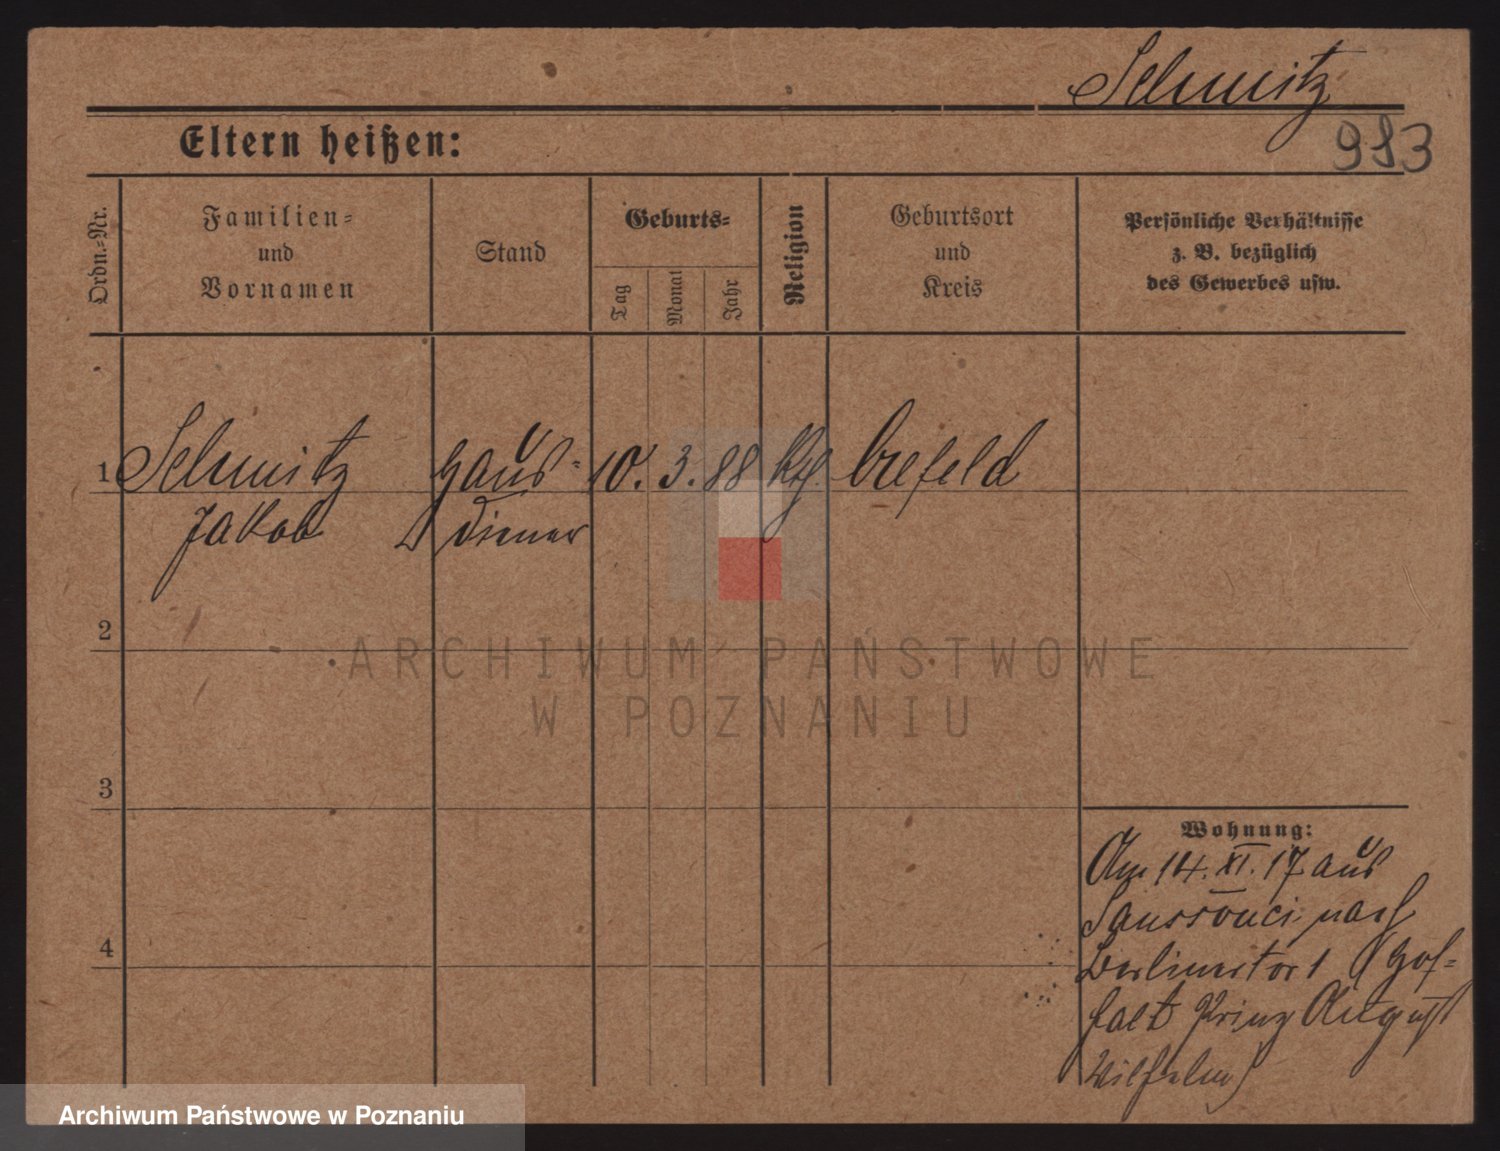 Schmitz
Eltern heißen:
983
Ordn.=Nr.
Familien=
und
Vornamen
Stand
Geburts=
Tag
Monat
Jahr
Religion
Geburtsort
und
Kreis
Persönliche Verhältnisse
z. B. bezüglich
des Gewerbes usw.
1 Schmitz Haus= 10. 3. 88 Kth. Crefeld
Jakob Diener
2
3
4
Wohnung:
Am 14. XI. 17 aus
Sanssouci nach
Berlinertor 1 (Hof=
halt Prinz August
Wilhelm)
ARCHIWUM PAŃSTWOWE
W POZNANIU
Archiwum Państwowe w Poznaniu